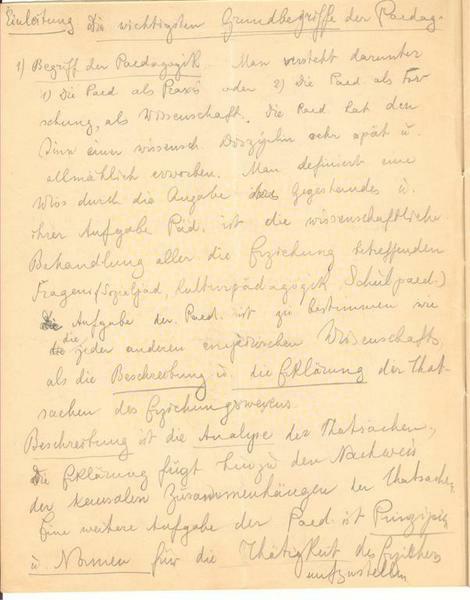 Einleitung Die wichtigsten Grundbegriffe der Paedag.
1) Begriff der Paedagogik. Man versteht darunter
1) Die Paed als Praxis oder 2) Die Paed als For
schung, als Wissenschaft. Die Paed hat den
Sinn einer wissensch. Disziplin sehr spät u.
allmählich erworben. Man definiert eine
Wiss durch die Angabe ihres Gegenstandes u.
ihrer Aufgabe Päd. ist die wissenschaftliche
Behandlung aller die Erziehung betreffenden
Fragen (Sozialpäd, Kulturpädagogik Schulpaed.)
Die Aufgabe der Paed. ist zu bestimmen wie
die jeder anderen empirischen Wissenschaft,
als die Beschreibung u. die Erklärung der That-
sachen des Erziehungswesens
Beschreibung ist die Analyse der Thatsachen,
Die Erklärung fügt hinzu den Nachweis
der kausalen Zusammenhängen der Thatsachen.
Eine weitere Aufgabe der Paed. ist Prinzipien
u. Normen für die Thätigkeit des Erziehers
aufzustellen